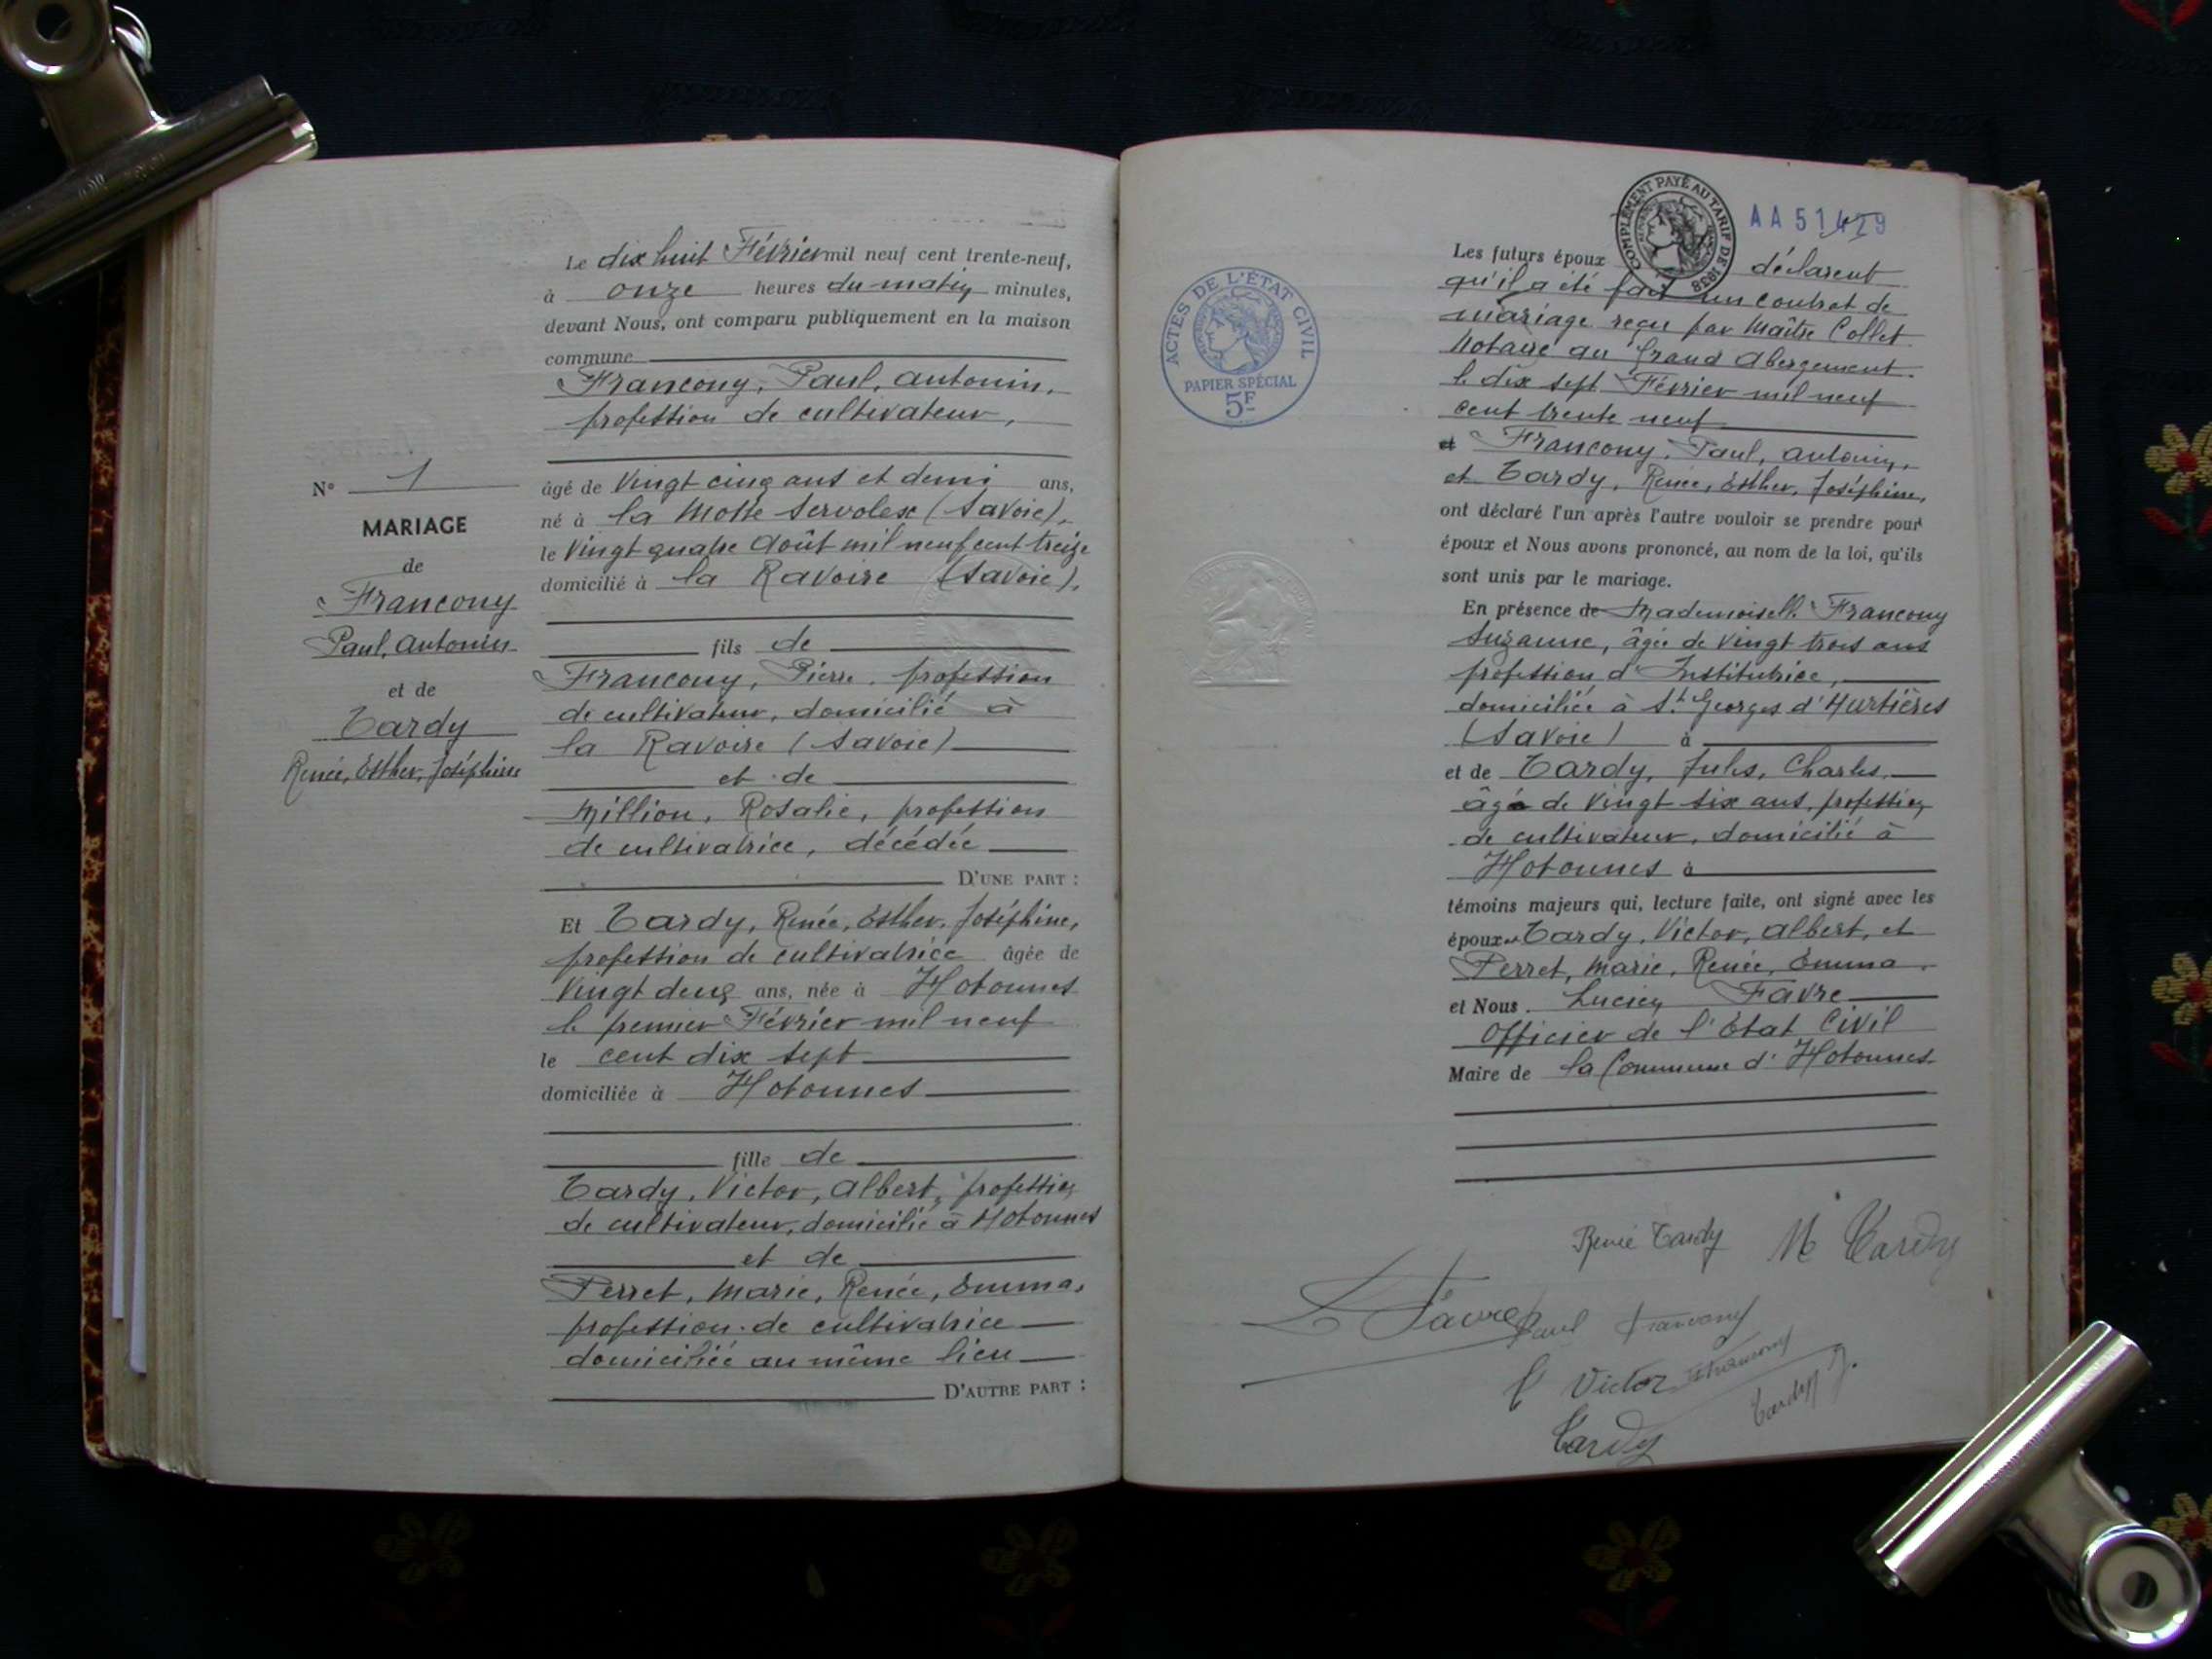 Le dix huit Février mil neuf cent trente-neuf,
à onze heures du matin minutes,
devant Nous, ont comparu publiquement en la maison
commune
Francony, Paul, Antonin,
profession de cultivateur,
N° 1
MARIAGE
de
Francony
Paul, Antonin
et de
Tardy
Renée, Esther, Joséphine
âgé de vingt cinq ans et demi ans,
né à la Motte Servolex (Savoie),
le vingt quatre Août mil neuf cent treize
domicilié à la Ravoire (Savoie),
fils de
Francony, Pierre, profession
de cultivateur, domicilié à
la Ravoire (Savoie)
et de
Million, Rosalie, profession
de cultivatrice, décédée
D'UNE PART :
Et Tardy, Renée, Esther, Joséphine,
profession de cultivatrice âgée de
vingt deux ans, née à Hotonnes
le premier Février mil neuf
le cent dix sept
domiciliée à Hotonnes
fille de
Tardy, Victor, Albert, profession
de cultivateur, domicilié à Hotonnes
et de
Perret, Marie, Renée, Emma,
profession de cultivatrice
domiciliée au même lieu
D'AUTRE PART :
COMPLÉMENT PAYÉ AU TARIF DE 1938
AA51429
ACTES DE L'ÉTAT CIVIL
PAPIER SPÉCIAL
5F
Les futurs époux déclarent
qu'il a été fait un contrat de
mariage reçu par Maître Collet
Notaire au Grand Abergement
le dix sept Février mil neuf
cent trente neuf
et Francony, Paul, Antonin,
et Tardy, Renée, Esther, Joséphine,
ont déclaré l'un après l'autre vouloir se prendre pour
époux et Nous avons prononcé, au nom de la loi, qu'ils
sont unis par le mariage.
En présence de Mademoiselle Francony
Suzanne, âgée de vingt trois ans
profession d'Institutrice,
domiciliée à St Georges d'Hurtières
(Savoie) à
et de Tardy, Jules, Charles,
âgé de vingt six ans, profession
de cultivateur, domicilié à
Hotonnes à
témoins majeurs qui, lecture faite, ont signé avec les
époux et Tardy, Victor, Albert, et
Perret, Marie, Renée, Emma
et Nous Lucien Favre
Officier de l'Etat Civil
Maire de la Commune d'Hotonnes
Renée Tardy M Tardy
L Favre Paul Francony
Victor Francony
Tardy J.
Tardy